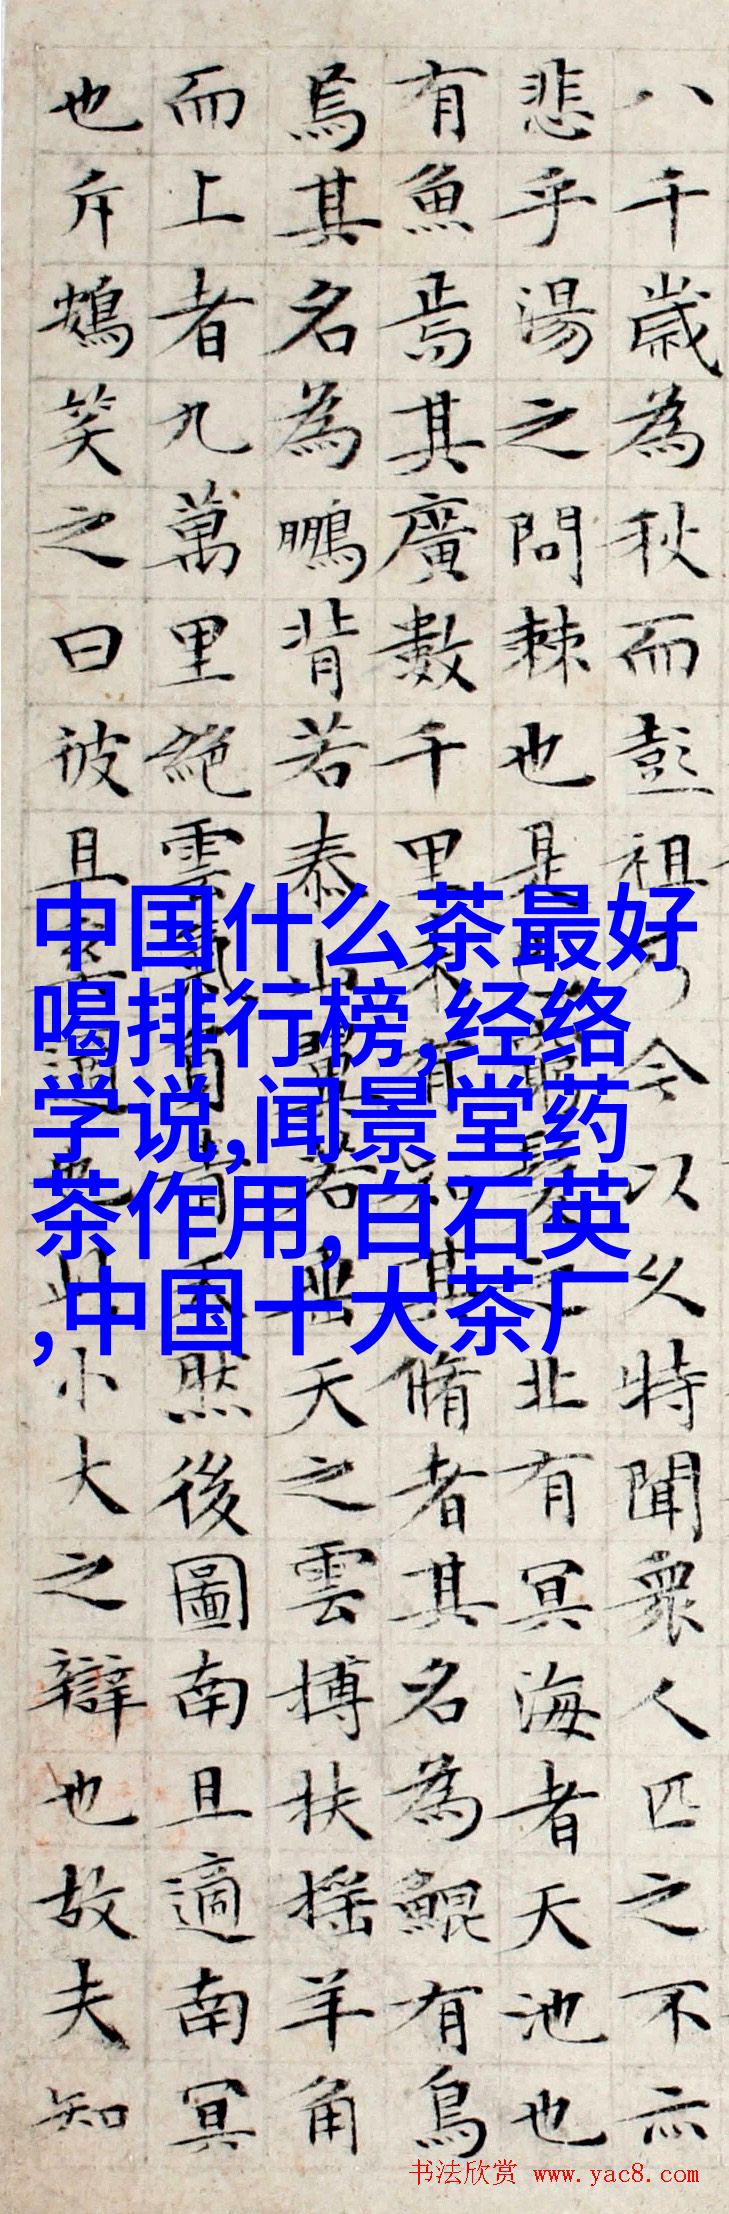 八千歲為秋而彭祖乃今以久特聞衆人匹之不亦
悲乎湯之問棘也是已窮髮之北有冥海者天池也
有魚焉其廣數千里未有知其脩者其名為鯤有鳥
焉其名為鵬背若泰山翼若垂天之雲搏扶搖羊角
而上者九萬里絕雲氣負青天然後圖南且適南冥
也斥鴳笑之曰彼且奚適也此小大之辯也故夫知
中国什么茶最好
喝排行榜,经络
学说,闻景堂药
茶作用,白石英
,中国十大茶厂
书法欣赏 www.yac8.com